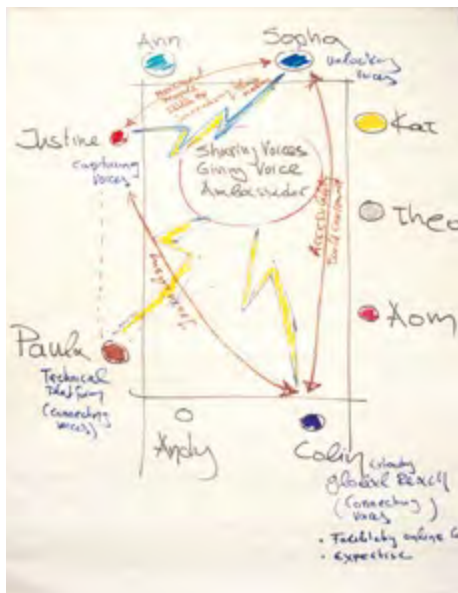 Ann
Sopha
unlocking
voices
Justine
capturing
voices
Kat
Sharing Voices
Giving Voice
Ambassador
Theo
Aom
Paula
Technical
Platform
(connecting
voices)
Andy
Colin
global Reach
(connecting
voices)
• Facilitating online
• expertise